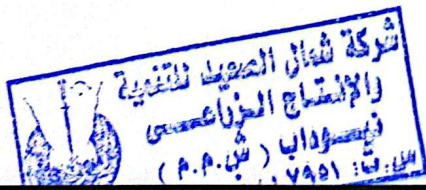 شركة شمال الصعيد للتنمية
والإنتاج الزراعى
نيوداب (ش.م.م)
س.ت: ٧٩٥١